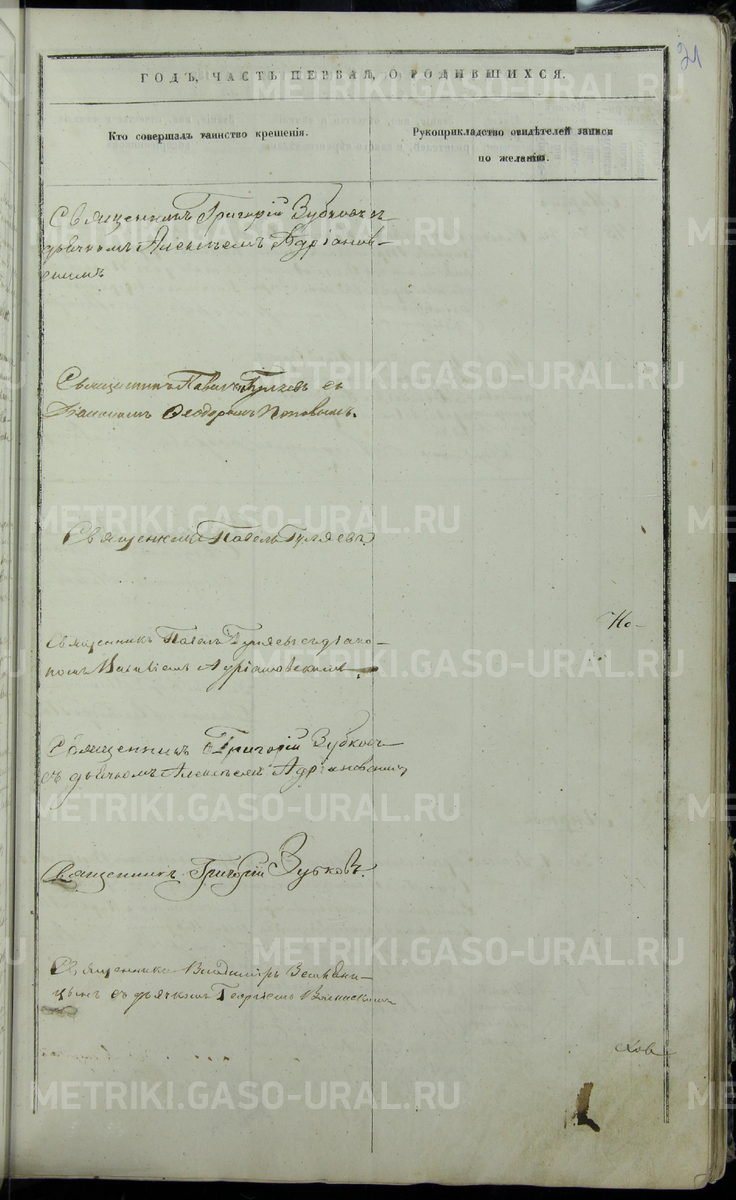 21
ГОДЪ, ЧАСТЬ ПЕРВАЯ, О РОДИВШИХСЯ.
Кто совершалъ таинство крещенія.
Рукоприкладство свидѣтелей записи
по желанію.
Священникъ Григорій Зубковъ съ
дьячкомъ Алексѣемъ Адріанов-
скимъ
Священникъ Павелъ Гуляевъ съ
Діакономъ Ѳеодоромъ Поповымъ.
Священникъ Павелъ Гуляевъ.
Но-
Священникъ Павелъ Гуляевъ съ діако-
номъ Адріановскимъ
Священникъ Григорій Зубковъ
съ дьячкомъ Алексѣемъ Адріановскимъ
Священникъ Григорій Зубковъ.
Священникъ Владиміръ Земляни-
цынъ съ дьячкомъ Георгіемъ
ков
METRIKI.GASO-URAL.RU